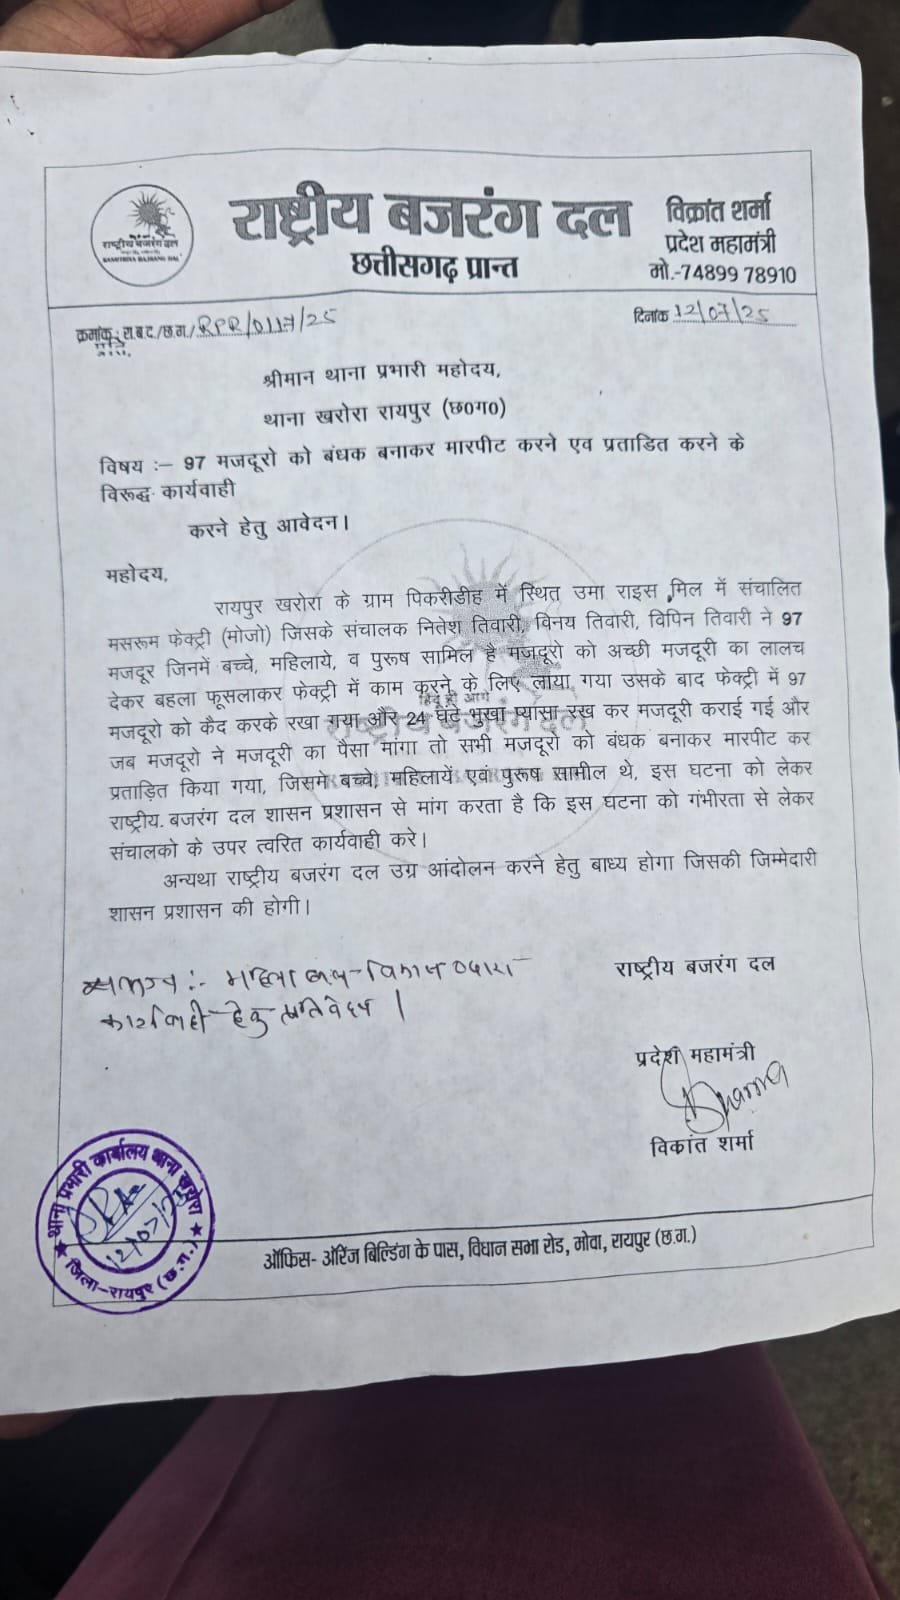 राष्ट्रीय बजरंग दल
RASHTRIYA BAJRANG DAL
राष्ट्रीय बजरंग दल
छत्तीसगढ़ प्रान्त
विक्रांत शर्मा
प्रदेश महामंत्री
मो.-74899 78910
क्रमांक: रा.ब.द./छ.ग./ RPR/0117/25
दिनांक 12/07/25
प्रति
श्रीमान थाना प्रभारी महोदय,
थाना खरोरा रायपुर (छ0ग0)
विषय :– 97 मजदूरो को बंधक बनाकर मारपीट करने एव प्रताडित करने के
विरूद्ध कार्यवाही
करने हेतु आवेदन।
महोदय,
रायपुर खरोरा के ग्राम पिकरीडीह में स्थित उमा राइस मिल में संचालित
मसरूम फेक्ट्री (मोजो) जिसके संचालक नितेश तिवारी, विनय तिवारी, विपिन तिवारी ने 97
मजदूर जिनमें बच्चे, महिलाये, व पुरूष सामिल है मजदूरो को अच्छी मजदूरी का लालच
देकर बहला फूसलाकर फेक्ट्री में काम करने के लिए लाया गया उसके बाद फेक्ट्री में 97
मजदूरो को कैद करके रखा गया और 24 घंटे भुखा प्यासा रख कर मजदूरी कराई गई और
जब मजदूरो ने मजदूरी का पैसा मांगा तो सभी मजदूरो को बंधक बनाकर मारपीट कर
प्रताड़ित किया गया, जिसमे बच्चे, महिलायें एवं पुरूष सामील थे, इस घटना को लेकर
राष्ट्रीय. बजरंग दल शासन प्रशासन से मांग करता है कि इस घटना को गंभीरता से लेकर
संचालको के उपर त्वरित कार्यवाही करे।
अन्यथा राष्ट्रीय बजरंग दल उग्र आंदोलन करने हेतु बाध्य होगा जिसकी जिम्मेदारी
शासन प्रशासन की होगी।
हिन्दू ही आगे
राष्ट्रीय बजरंग दल
महिला बाल विकास द्वारा
कार्यवाही हेतु प्रतिवेदन।
राष्ट्रीय बजरंग दल
प्रदेश महामंत्री
Sharma
विकांत शर्मा
थाना प्रभारी कार्यालय थाना खरोरा
12/07/25
जिला-रायपुर (छ.ग.)
ऑफिस- ऑरेंज बिल्डिंग के पास, विधान सभा रोड, मोवा, रायपुर (छ.ग.)